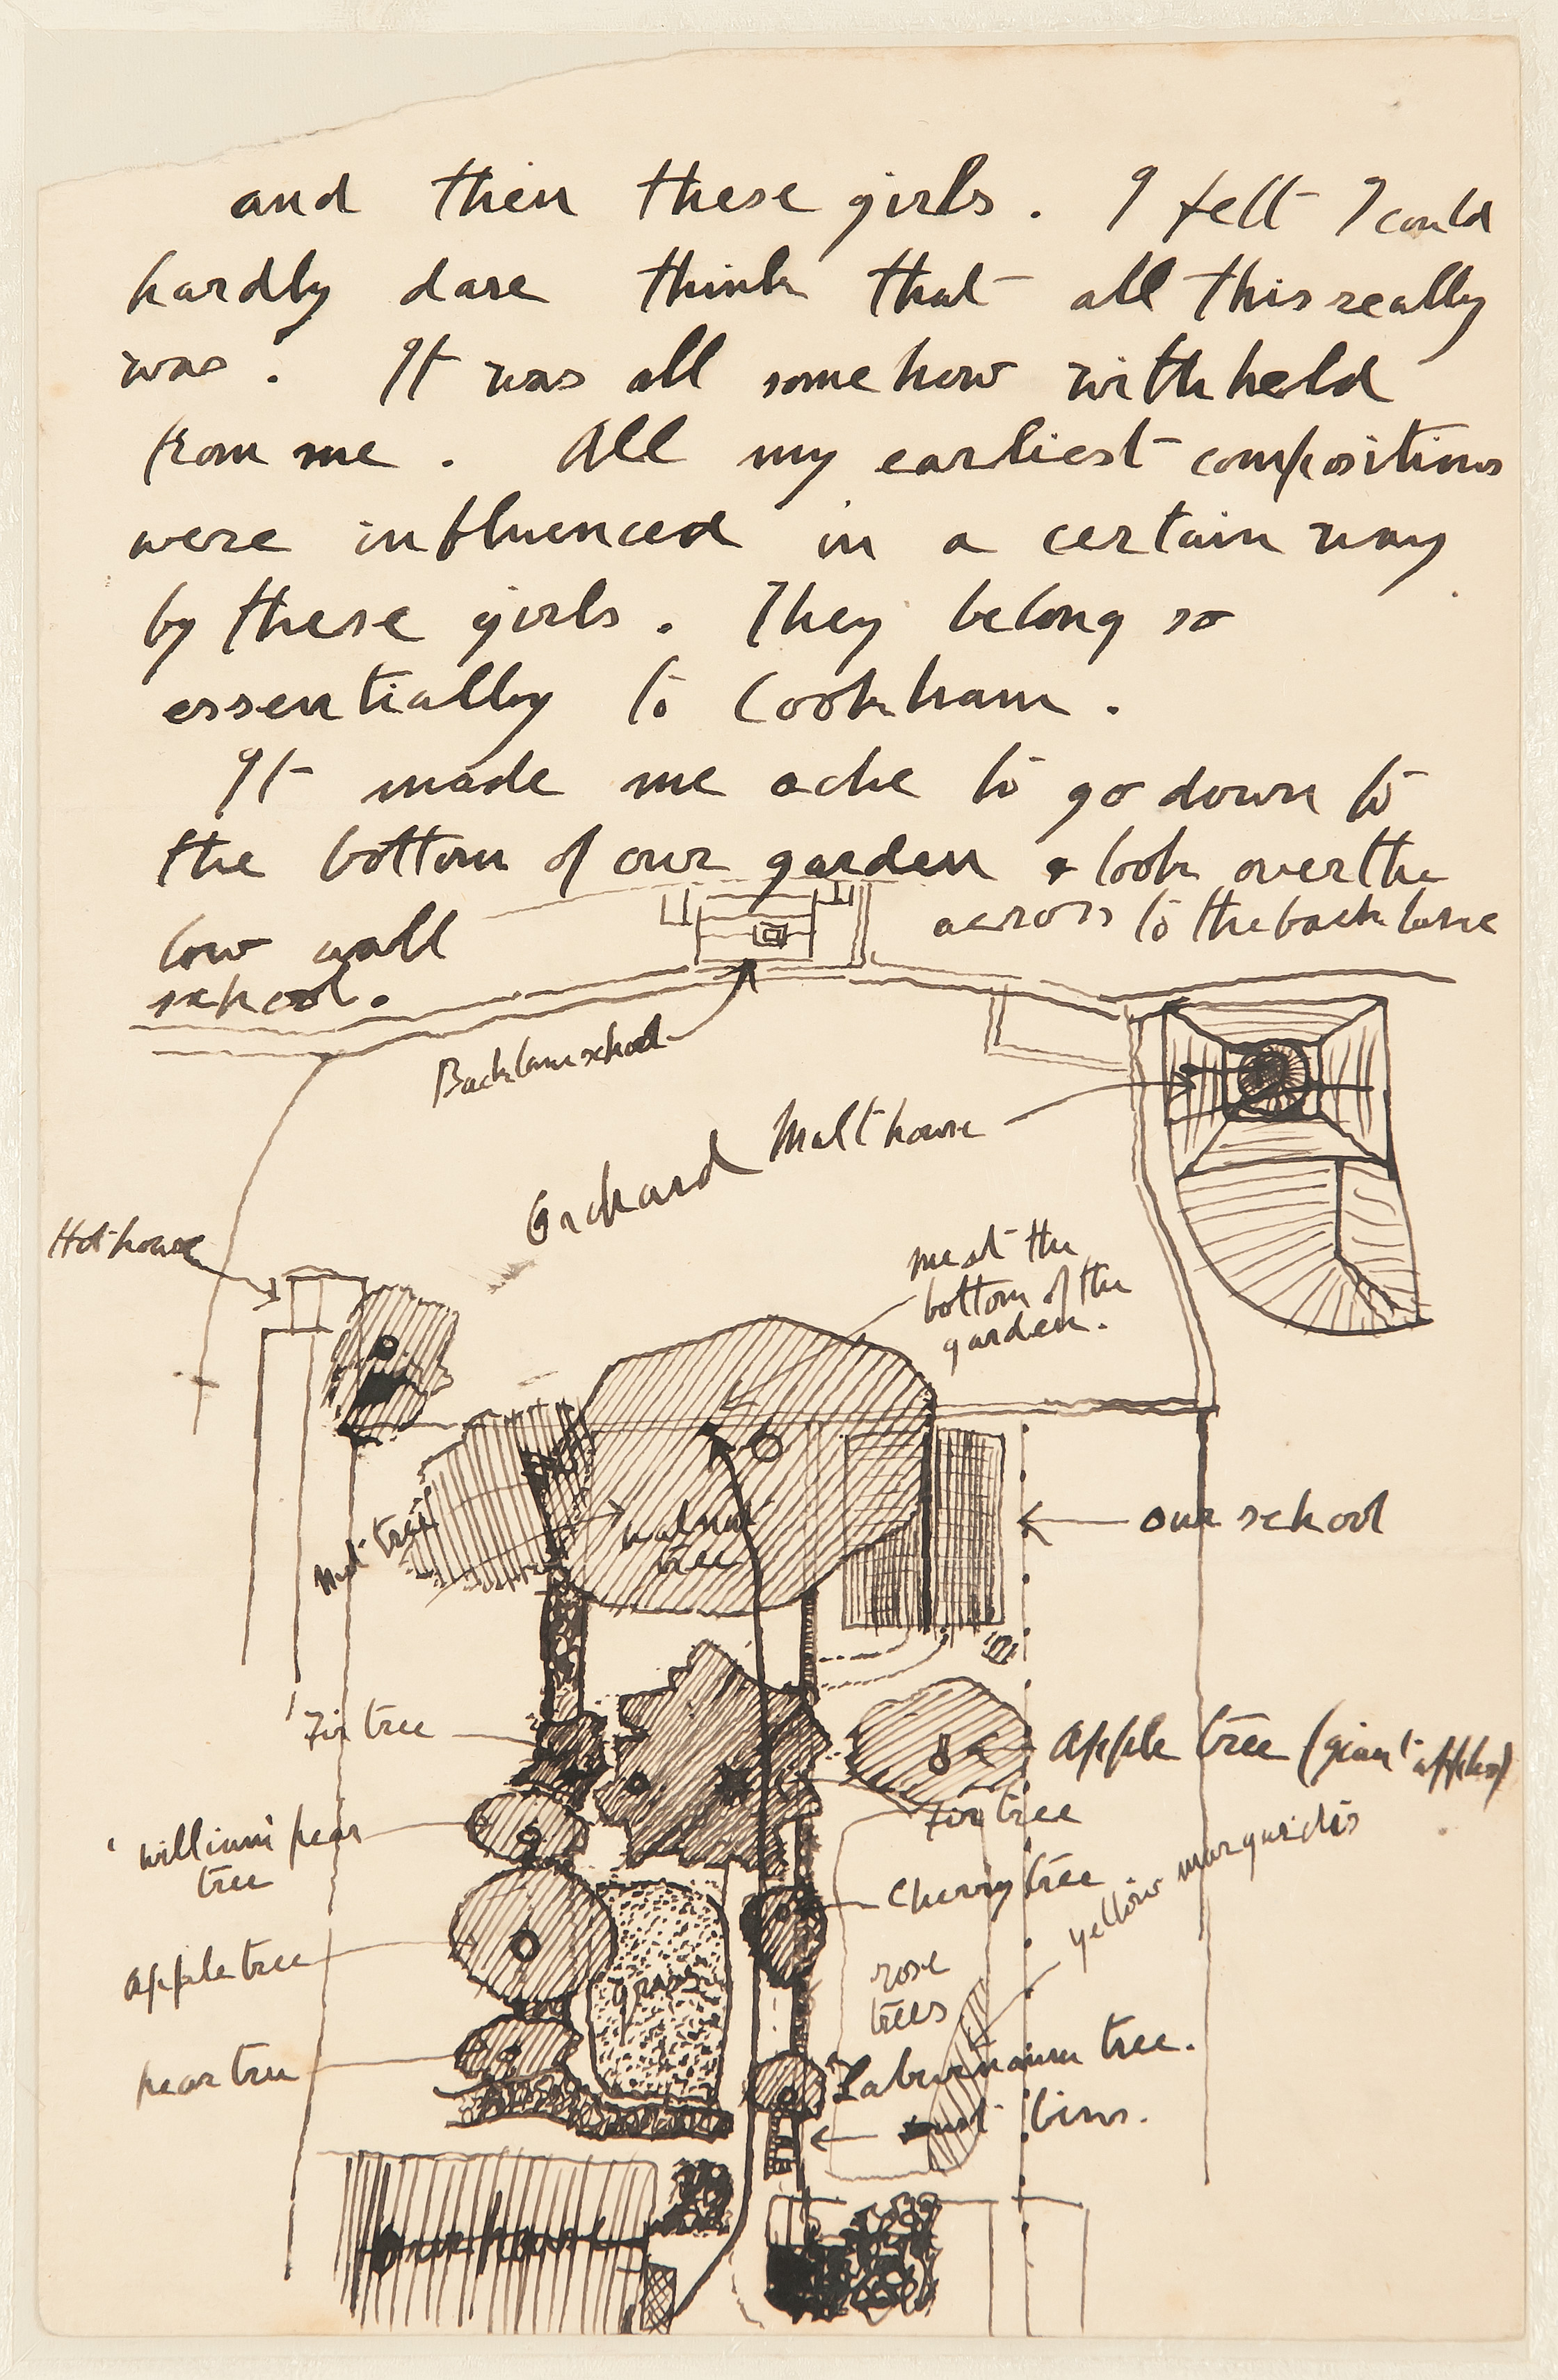 and then these girls. I felt I could
hardly dare think that all this really
was. It was all somehow withheld
from me. All my earliest compositions
were influenced in a certain way
by these girls. They belong so
essentially to Cookham.
It made me ache to go down to
the bottom of our garden & look over the
low wall across to the back lane
school.
Back lane school
Orchard Malthouse
Hot house
me at the
bottom of the
garden.
Nut tree
walnut
tree
our school
Fir tree
Apple tree (giant apples)
Fir tree
william pear
tree
Cherry tree
yellow marguridis
apple tree
grass
rose
trees
pear tree
Laburnaum tree.
dust bins.
Our house